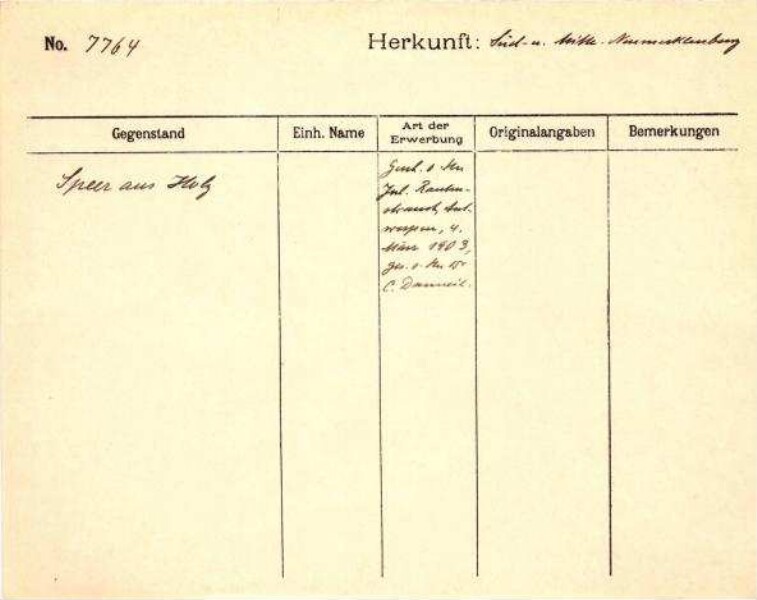 No. 7764
Herkunft: Süd- u. Mittl. Neumecklenburg
Gegenstand
Einh. Name
Art der
Erwerbung
Originalangaben
Bemerkungen
Speer aus Holz
Gesch. v. Hrn
Jul. Rauten-
strauch, Ant-
werpen, 4.
März 1903,
ges. v. Hrn Dr
C. Danneil.